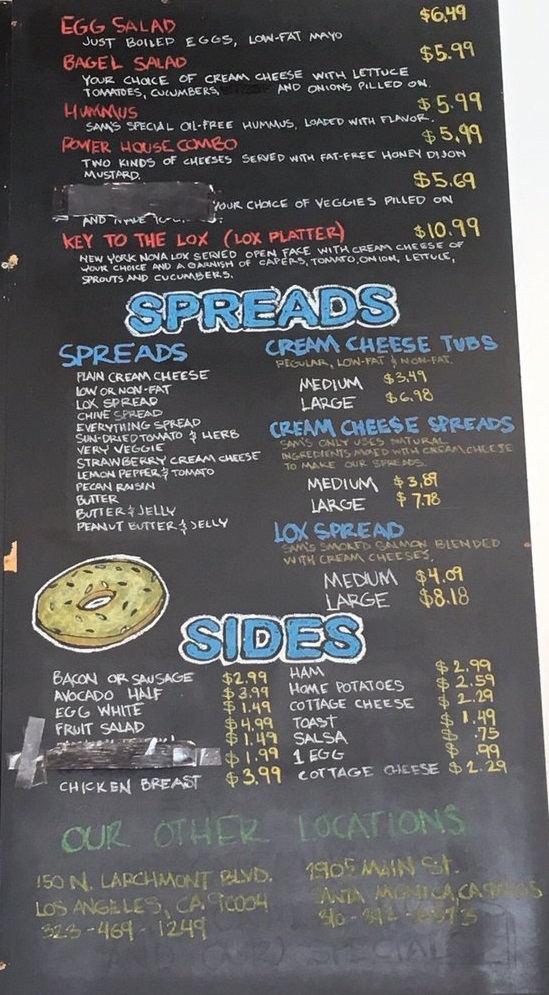 EGG SALAD $6.49
JUST BOILED EGGS, LOW-FAT MAYO
BAGEL SALAD $5.99
YOUR CHOICE OF CREAM CHEESE WITH LETTUCE
TOMATOES, CUCUMBERS, AND ONIONS PILLED ON.
HUMMUS $5.99
SAM'S SPECIAL OIL-FREE HUMMUS, LOADED WITH FLAVOR.
POWER HOUSE COMBO $5.99
TWO KINDS OF CHEESES SERVED WITH FAT-FREE HONEY DIJON
MUSTARD.
$5.69
YOUR CHOICE OF VEGGIES PILLED ON
AND
KEY TO THE LOX (LOX PLATTER) $10.99
NEW YORK NOVA LOX SERVED OPEN FACE WITH CREAM CHEESE OF
YOUR CHOICE AND A GARNISH OF CAPERS, TOMATO, ONION, LETTUCE,
SPROUTS AND CUCUMBERS.
SPREADS
SPREADS
PLAIN CREAM CHEESE
LOW OR NON-FAT
LOX SPREAD
CHIVE SPREAD
EVERYTHING SPREAD
SUN-DRIED TOMATO & HERB
VERY VEGGIE
STRAWBERRY CREAM CHEESE
LEMON PEPPER & TOMATO
PECAN RAISIN
BUTTER
BUTTER & JELLY
PEANUT BUTTER & JELLY
CREAM CHEESE TUBS
REGULAR, LOW-FAT & NON-FAT.
MEDIUM $3.49
LARGE $6.98
CREAM CHEESE SPREADS
SAM'S ONLY USES NATURAL
INGREDIENTS MIXED WITH CREAM CHEESE
TO MAKE OUR SPREADS.
MEDIUM $3.89
LARGE $7.78
LOX SPREAD
SAM'S SMOKED SALMON BLENDED
WITH CREAM CHEESES.
MEDIUM $4.09
LARGE $8.18
SIDES
BACON OR SAUSAGE $2.99
AVOCADO HALF $3.99
EGG WHITE $1.49
FRUIT SALAD $4.99
$1.49
$1.99
CHICKEN BREAST $3.99
HAM $2.99
HOME POTATOES $2.59
COTTAGE CHEESE $2.29
TOAST $1.49
SALSA $.75
1 EGG $.99
COTTAGE CHEESE $2.29
OUR OTHER LOCATIONS
150 N. LARCHMONT BLVD.
LOS ANGELES, CA. 90004
323-469-1249
1905 MAIN St.
SANTA MONICA, CA.